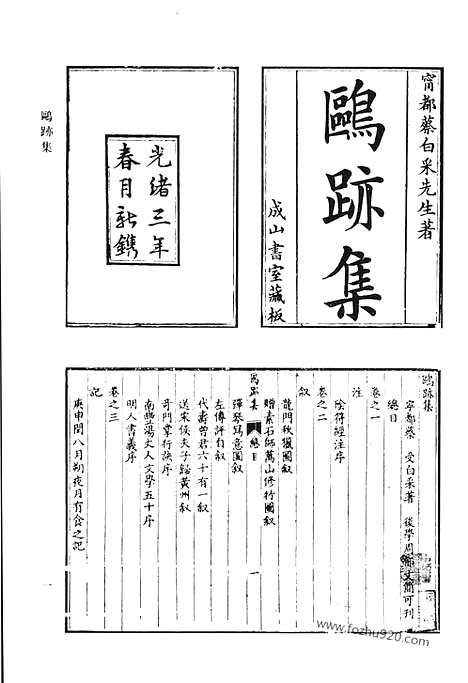 甯都蔡白采先生著
鷗跡集
成山書室藏板
光緒三年
春月新鐫
鷗跡集
鷗跡集
甯都蔡 受白采著 後學周
總目
卷之一
注
陰符經注序
卷之二
敘
龍門秋獵圖敘
贈素石師萬山修行圖敘
鷗跡集 總目 一
彈琴寫意圖敘
左傳評自敘
代壽曾君六十有一敘
送宋侯夫子歸黃州敘
奇門掌行訣序
南豐湯丈人文學五十序
明人書義序
卷之三
記
庚申閏八月朔夜月有食之記
一
www.fozhu920.com